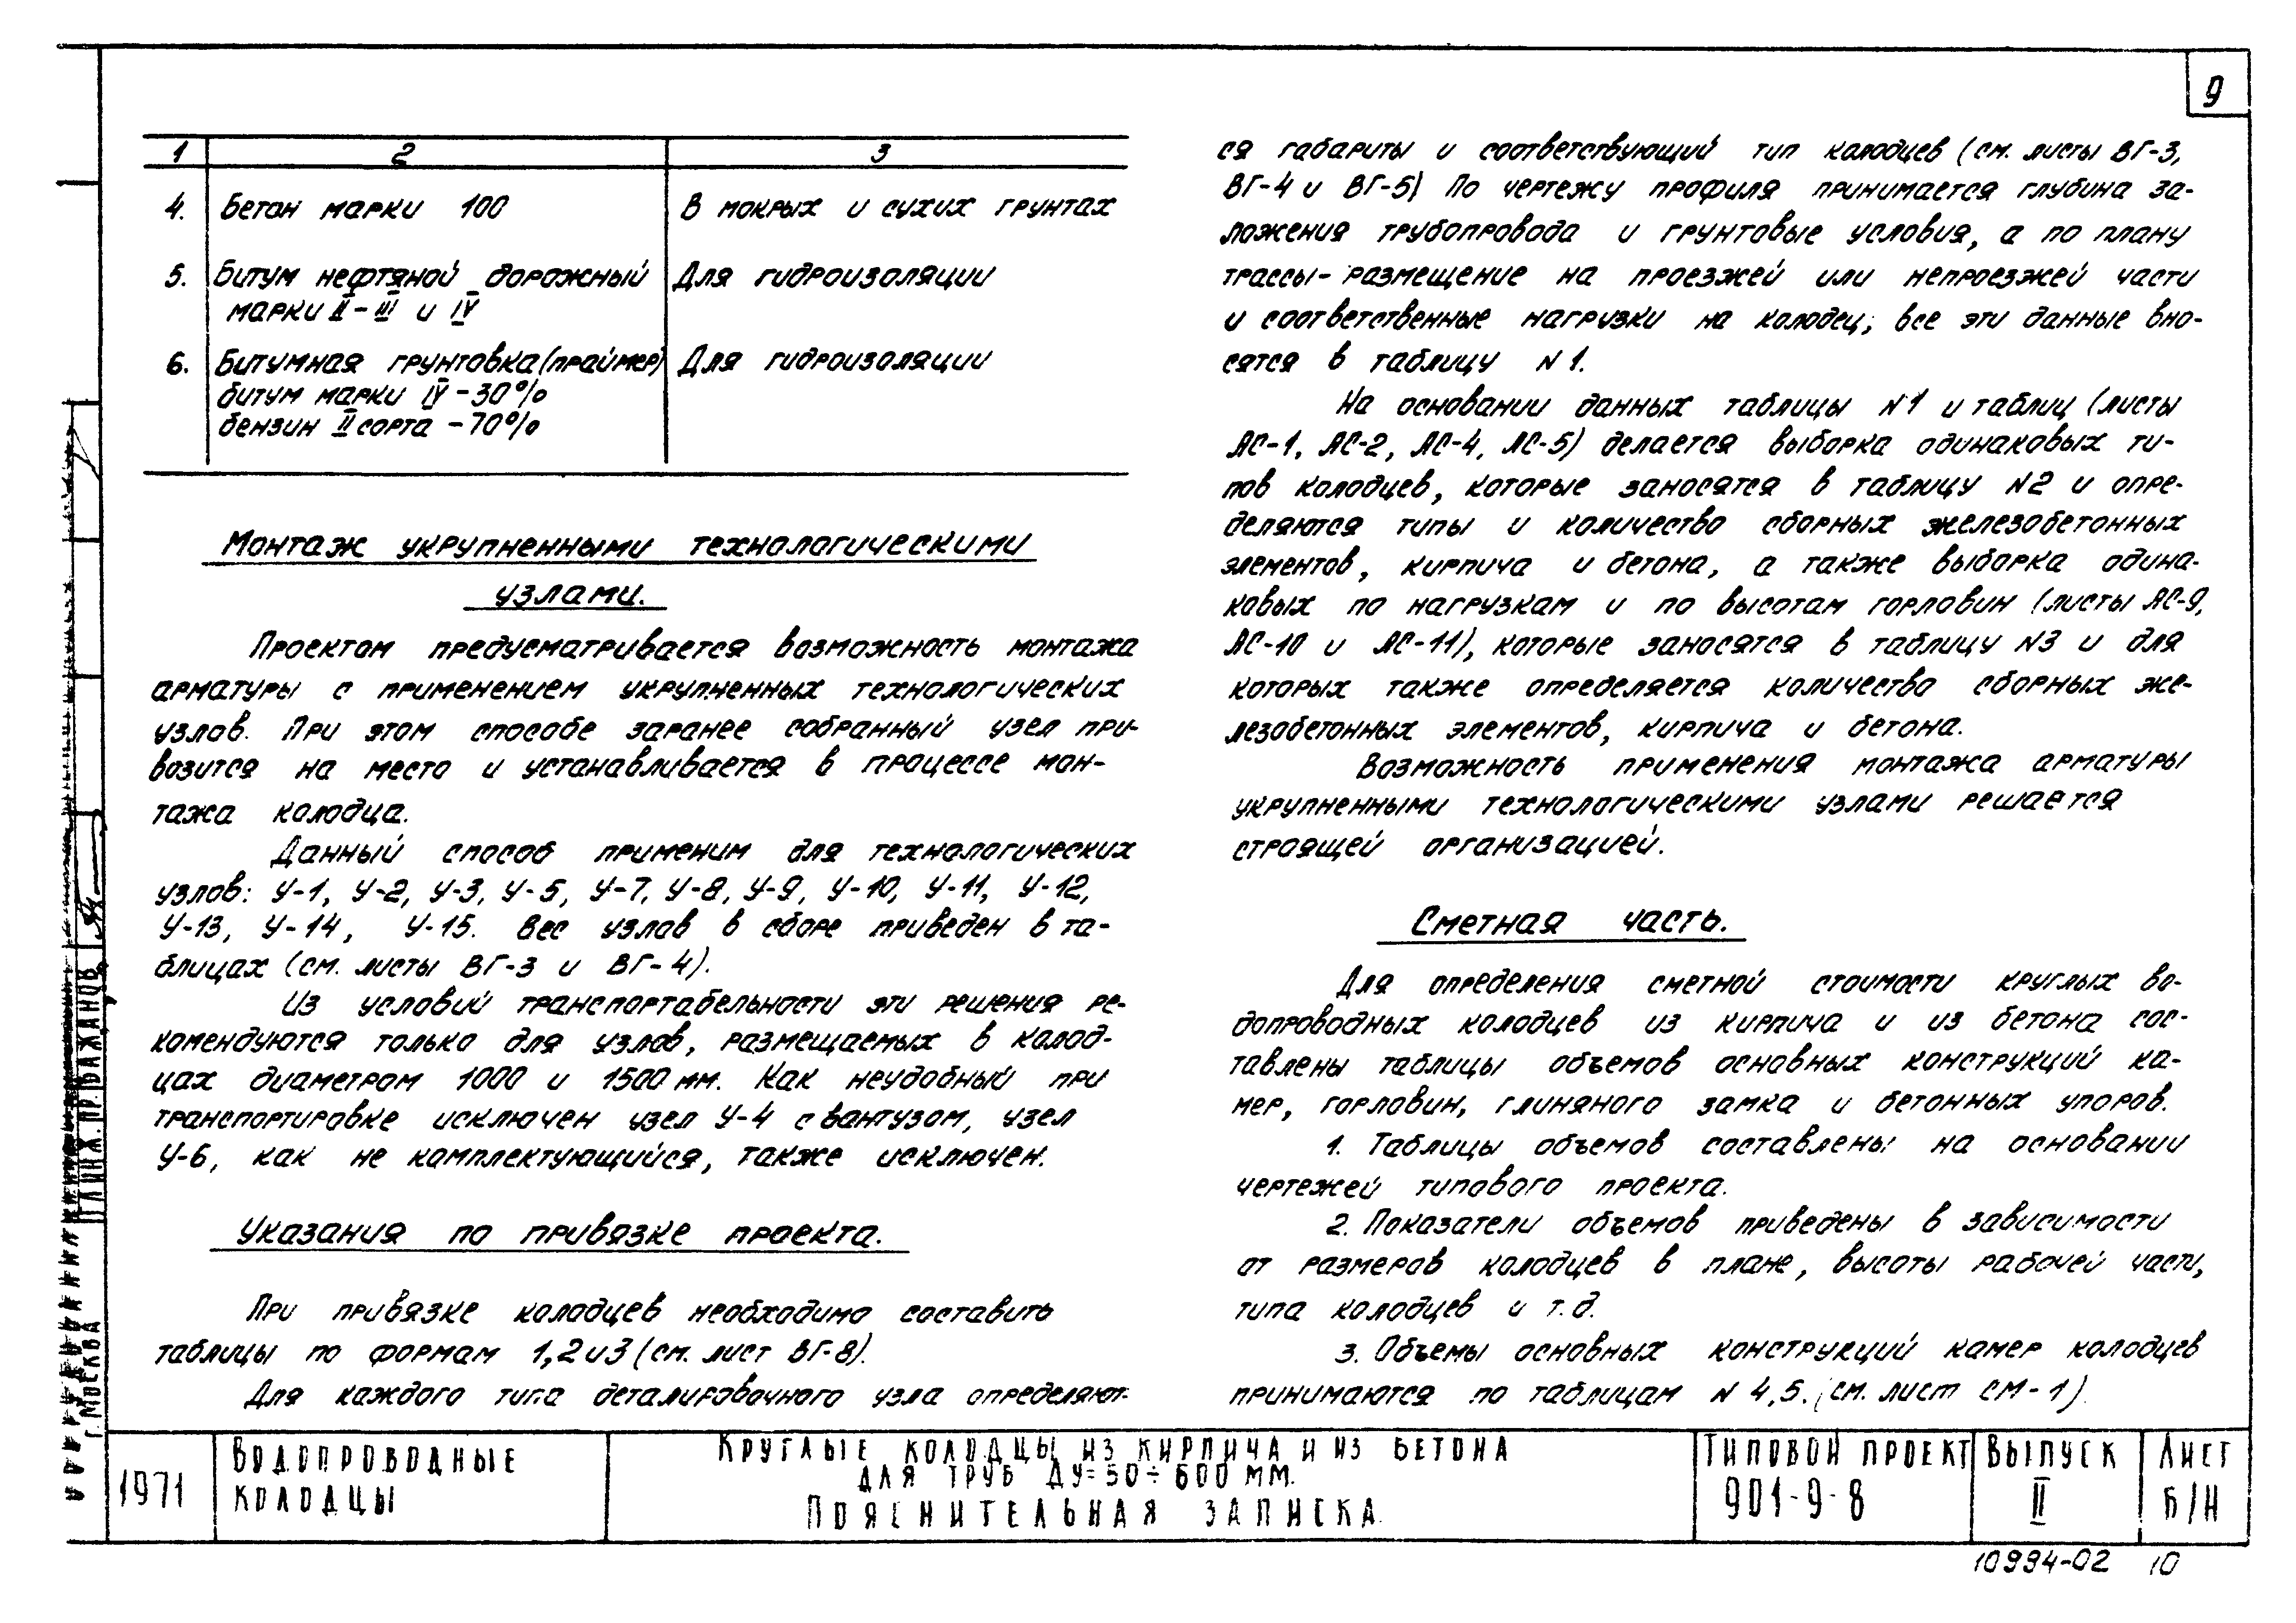 9
1 2 3
4. Бетон марки 100 В мокрых и сухих грунтах
5. Битум нефтяной дорожный Для гидроизоляции
марки II-III и IV
6. Битумная грунтовка (праймер) Для гидроизоляции
битум марки IV -30%
бензин II сорта -70%
Монтаж укрупненными технологическими
узлами.
Проектом предусматривается возможность монтажа
арматуры с применением укрупненных технологических
узлов. При этом способе заранее собранный узел при-
возится на место и устанавливается в процессе мон-
тажа колодца.
Данный способ применим для технологических
узлов: У-1, У-2, У-3, У-5, У-7, У-8, У-9, У-10, У-11, У-12,
У-13, У-14, У-15. Вес узлов в сборе приведен в та-
блицах (см. листы ВГ-3 и ВГ-4).
Из условий транспортабельности эти решения ре-
комендуются только для узлов, размещаемых в колод-
цах диаметром 1000 и 1500 мм. Как неудобный при
транспортировке исключен узел У-4 с вантузом, узел
У-6, как не комплектующийся, также исключен.
Указания по привязке проекта.
При привязке колодцев необходимо составить
таблицы по формам 1,2 и 3 (см. лист ВГ-8).
Для каждого типа деталировочного узла определяют-
ся габариты и соответствующий тип колодцев (см. листы ВГ-3,
ВГ-4 и ВГ-5) По чертежу профиля принимается глубина за-
ложения трубопровода и грунтовые условия, а по плану
трассы- размещение на проезжей или непроезжей части
и соответственные нагрузки на колодец; все эти данные вно-
сятся в таблицу N 1.
На основании данных таблицы N1 и таблиц (листы
АС-1, АС-2, АС-4, АС-5) делается выборка одинаковых ти-
пов колодцев, которые заносятся в таблицу N2 и опре-
деляются типы и количество сборных железобетонных
элементов, кирпича и бетона, а также выборка одина-
ковых по нагрузкам и по высотам горловин (листы АС-9,
АС-10 и АС-11), которые заносятся в таблицу N3 и для
которых также определяется количество сборных же-
лезобетонных элементов, кирпича и бетона.
Возможность применения монтажа арматуры
укрупненными технологическими узлами решается
строящей организацией.
Сметная часть.
Для определения сметной стоимости круглых во-
допроводных колодцев из кирпича и из бетона сос-
тавлены таблицы объемов основных конструкций ка-
мер, горловин, глиняного замка и бетонных упоров.
1. Таблицы объемов составлены на основании
чертежей типового проекта.
2. Показатели объемов приведены в зависимости
от размеров колодцев в плане, высоты рабочей части,
типа колодцев и т.д.
3. Объемы основных конструкций камер колодцев
принимаются по таблицам N 4,5. (см. лист СМ-1).
г. Москва
1971
Водопроводные
колодцы
Круглые колодцы из кирпича и из бетона
для труб Ду=50÷600 мм.
Пояснительная записка.
Типовой проект
901-9-8
Выпуск
II
Лист
Б/Н
10994-02 10